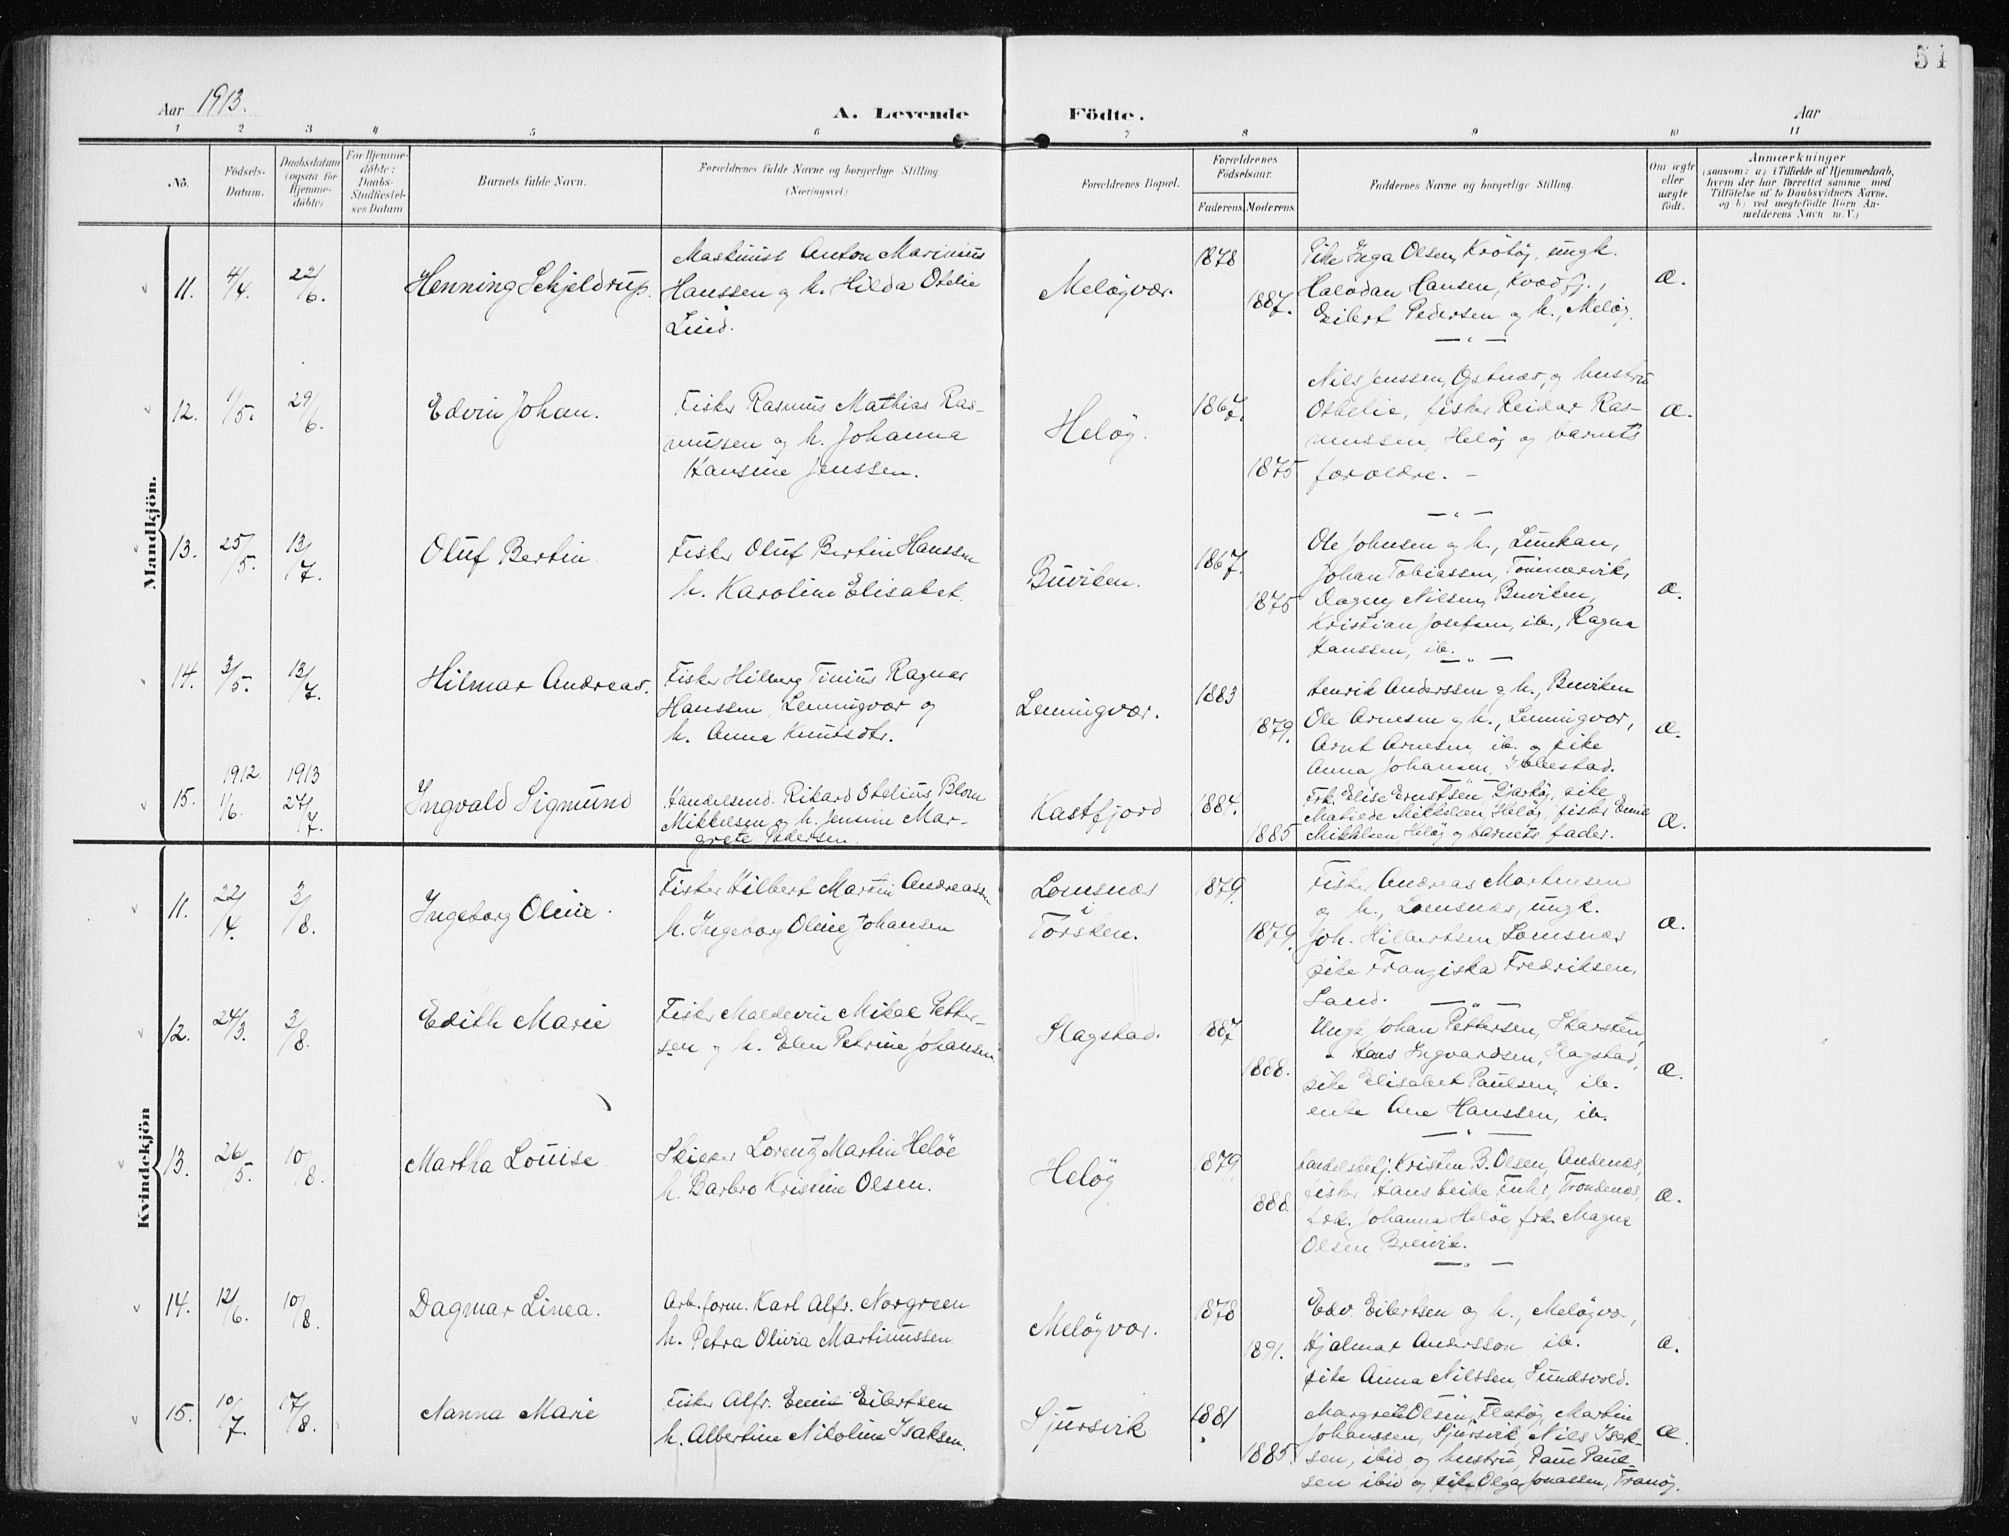 51
Aar 1913.
A. Levende Födte.
Aar
1 2 3 4 5 6 7 8 9 10 11
No.
Födsels-
Datum.
Daabsdatum
(ogsaa for
Hjemme-
döbte)
For Hjemme-
döbte:
Daabs-
Stadfæstel-
ses Datum
Barnets fulde Navn.
Forældrenes fulde Navne og borgerlige Stilling
(Næringsvei)
Forældrenes Bopæl.
Forældrenes
Födselsaar.
Faderens
Moderens
Faddernes Navne og borgerlige Stilling.
Om ægte
eller
uægte
födt.
Anmærkninger
(saasom: a) i Tilfælde af Hjemmedaab,
hvem der har forrettet samme med
Tilföielse af to Daabsvidners Navne,
og b) ved uægtefödte Börn An-
melderens Navn m.V.)
Mandkjön.
11. 4/4. 22/6. Henning Schjeldrup.
Maskinist Anton Marinius
Hanssen og h. Hilda Otelie
Lind.
Meløyvær. 1878 1887.
Pike Inga Olsen, Krøtøy, ungk.
Halvdan Hansen, Kvædfj.,
Eilert Pedersen og h., Meløy.
æ.
12. 1/5. 29/6. Edvin Johan.
Fisker Rasmus Mathias Ras-
mussen og h. Johanna
Hansine Jenssen.
Heløy. 1867. 1875
Nils Jenssen, og hustru
Othelie, fisker Reidar Ras-
mussen, Heløy og barnets
forældre. -
æ.
13. 25/5. 13/7. Oluf Bertin.
Fisker Oluf Bertin Hanssen
h. Karoline Elisabet.
Buviken. 1867. 1875
Ole Johnsen og h.,
Johan Tobiassen, Tömmervik,
Dagny Nilsen, Buviken,
Kristian Josefsen, ib., Ragna
Hanssen, ib.
æ.
14. 3/5. 13/7. Hilmar Andreas.
Fisker Hilberg Tinius Ragnar
Hanssen, Lemmingvær og
h. Anna Knutsdtr.
Lemmingvær. 1883 1879.
Henrik Anderssen og h., Buviken
Ole Arnesen og h., Lemmingvær,
Arnt Arnesen, ib. og pike
Anna Johansen,
æ.
15. 1912 1/6. 1913 27/7. Ingvald Sigmund
Handelsmd. Rikard Stelius Blom
Mikkelsen og h. Jensine Mar-
grete Pedersen.
Kastfjord 1884. 1885
Frk. Elise Ernstsen, Bjarkøy, pike
Matilde Mikkelsen, Heløy, fisker Emil
Mikkelsen Heløy og barnets fader.
æ.
Kvindekjön
11. 22/4. 3/8. Ingeborg Oline.
Fisker Hilbert Martin Andreassen
h. Ingeborg Oline Johansen
Lomsnæs
i
Torsken.
1879. 1879.
Fisker Andreas Martensen
og h., Lomsnæs, ungk.
Joh. Hilbertsen, Lomsnæs
pike Franziska Fredriksen,
Land.
æ.
12. 24/3. 3/8. Edith Marie
Fisker Maldevin Mikal Petter-
sen og h. Elen Petrine Johansen
Hagstad. 1887 1888.
Ungk. Johan Pettersen, Skarsten,
" Hans Ingvardsen, Hagstad,
pike Elisabet Paulsen, ib.
enke Ane Hanssen, ib.
æ.
13. 26/5. 10/8. Martha Louise.
Skipper Lorentz Martin Heløe
h. Barbro Kristine Olsen.
Heløy 1879. 1888.
Handelsbetj. Kristen B. Olsen, Andenæs,
fisker Hans Trondenæs,
frk. Johanna Heløe, frk. Magna
Olsen, Breivik.
æ.
14. 12/6. 10/8. Dagmar Linea.
Arb.form. Karl Alfr. Norgreen
h. Petra Olivia Martinussen
Meløyvær. 1878 1891.
Edv. Eilertsen og h., Meløyvær,
Hjalmar Andersson, ib.
pike Anna Nilssen, Sundsvold.
æ.
15. 10/7. 17/8. Nanna Marie
Fisker Alfr. Emil Eilertsen
h. Albertine Nikoline Isaksen.
Sjursvik 1881. 1885.
Margrete Olsen, Flatøy, Martin
Johanssen, Sjursvik, Nils Isak-
sen, ibid, og hustru, Paul Paul-
sen ibid og pike Olga Jonassen, Tranøy.
æ.